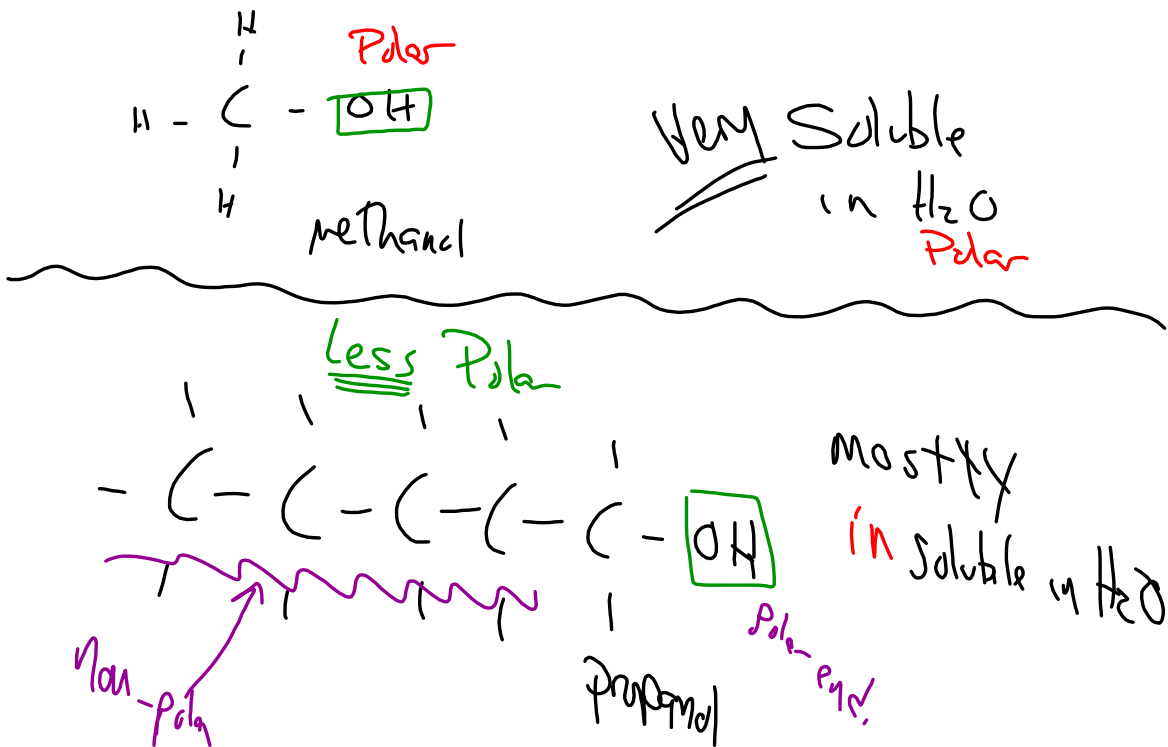 H
Polar
H - C - OH
H
methanol
Very Soluble
in H2O
Polar
Less Polar
- C - C - C - C - C - OH
mostly
in soluble in H2O
Non-polar
propanol
Polar end